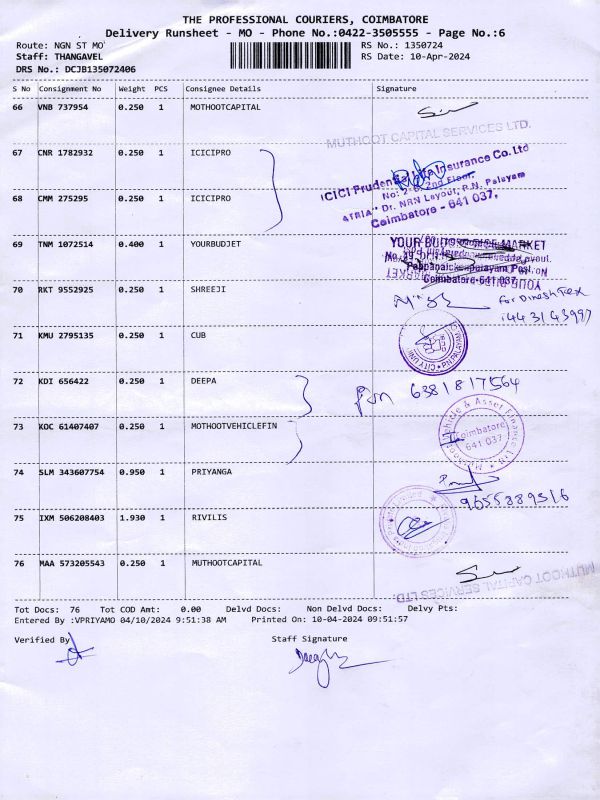 THE PROFESSIONAL COURIERS, COIMBATORE
Delivery Runsheet - MO - Phone No.:0422-3505555 - Page No.:6
Route: NGN ST MO RS No.: 1350724
Staff: THANGAVEL RS Date: 10-Apr-2024
DRS No.: DCJB135072406
S No Consignment No Weight PCS Consignee Details Signature
66 VNB 737954 0.250 1 MOTHOOTCAPITAL
MUTHOOT CAPITAL SERVICES LTD.
67 CNR 1782932 0.250 1 ICICIPRO
ICICI Prudential Life Insurance Co.Ltd
No: 2-B, 2nd Floor,
68 CMM 275295 0.250 1 ICICIPRO
"ATRIA" Dr. NRN Layout, P.N. Palayam
Coimbatore - 641 037.
69 TNM 1072514 0.400 1 YOURBUDJET
MARKET
Pappanaickenpalayam Post,
Coimbatore-641 037
70 RKT 9552925 1 SHREEJI
0.250
for Dinesh Tex
71 KMU 2795135 0.250 1 CUB
CITY UNION
P.N.PALAYAM
72 KDI 656422 0.250 1 DEEPA
6381817564
73 KOC 61407407 0.250 1 MOTHOOTVEHICLEFIN
Muthoot Vehicle & Asset Finance Ltd
Coimbatore
641 037
74 SLM 343607754 0.950 1 PRIYANGA
9655889516
75 IXM 506208403 1.930 1 RIVILIS
76 MAA 573205543 0.250 1 MUTHOOTCAPITAL
MUTHOOT CAPITAL SERVICES LTD
Tot Docs: 76 Tot COD Amt: 0.00 Delvd Docs: Non Delvd Docs: Delvy Pts:
Entered By :VPRIYAMO 04/10/2024 9:51:38 AM Printed On: 10-04-2024 09:51:57
Verified By Staff Signature